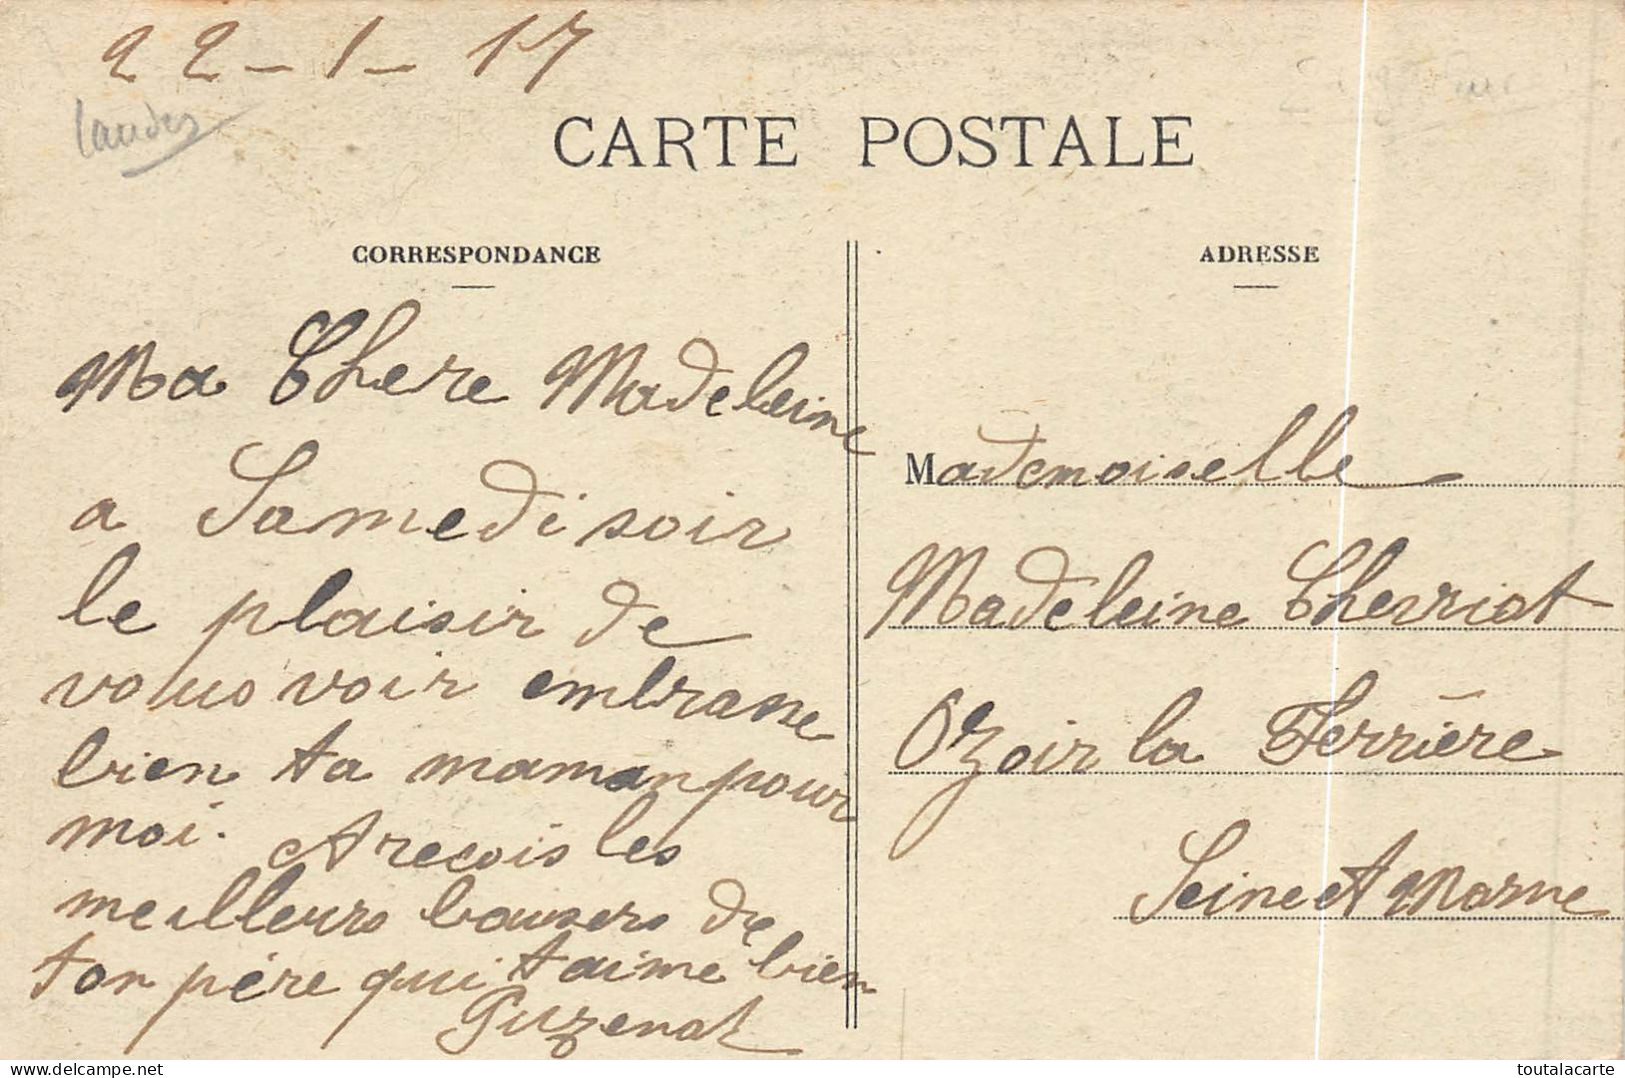 22-1-17
Landes
CARTE POSTALE
CORRESPONDANCE
Ma Chere Madeleine
a Samedi soir
le plaisir de
vous voir embrasse
bien ta maman pour
moi. recois les
meilleurs baisers de
ton père qui t'aime bien
ADRESSE
Mademoiselle
Madeleine Cherriot
Ozoir la Ferrière
Seine et Marne
delcampe.net
toutalacarte